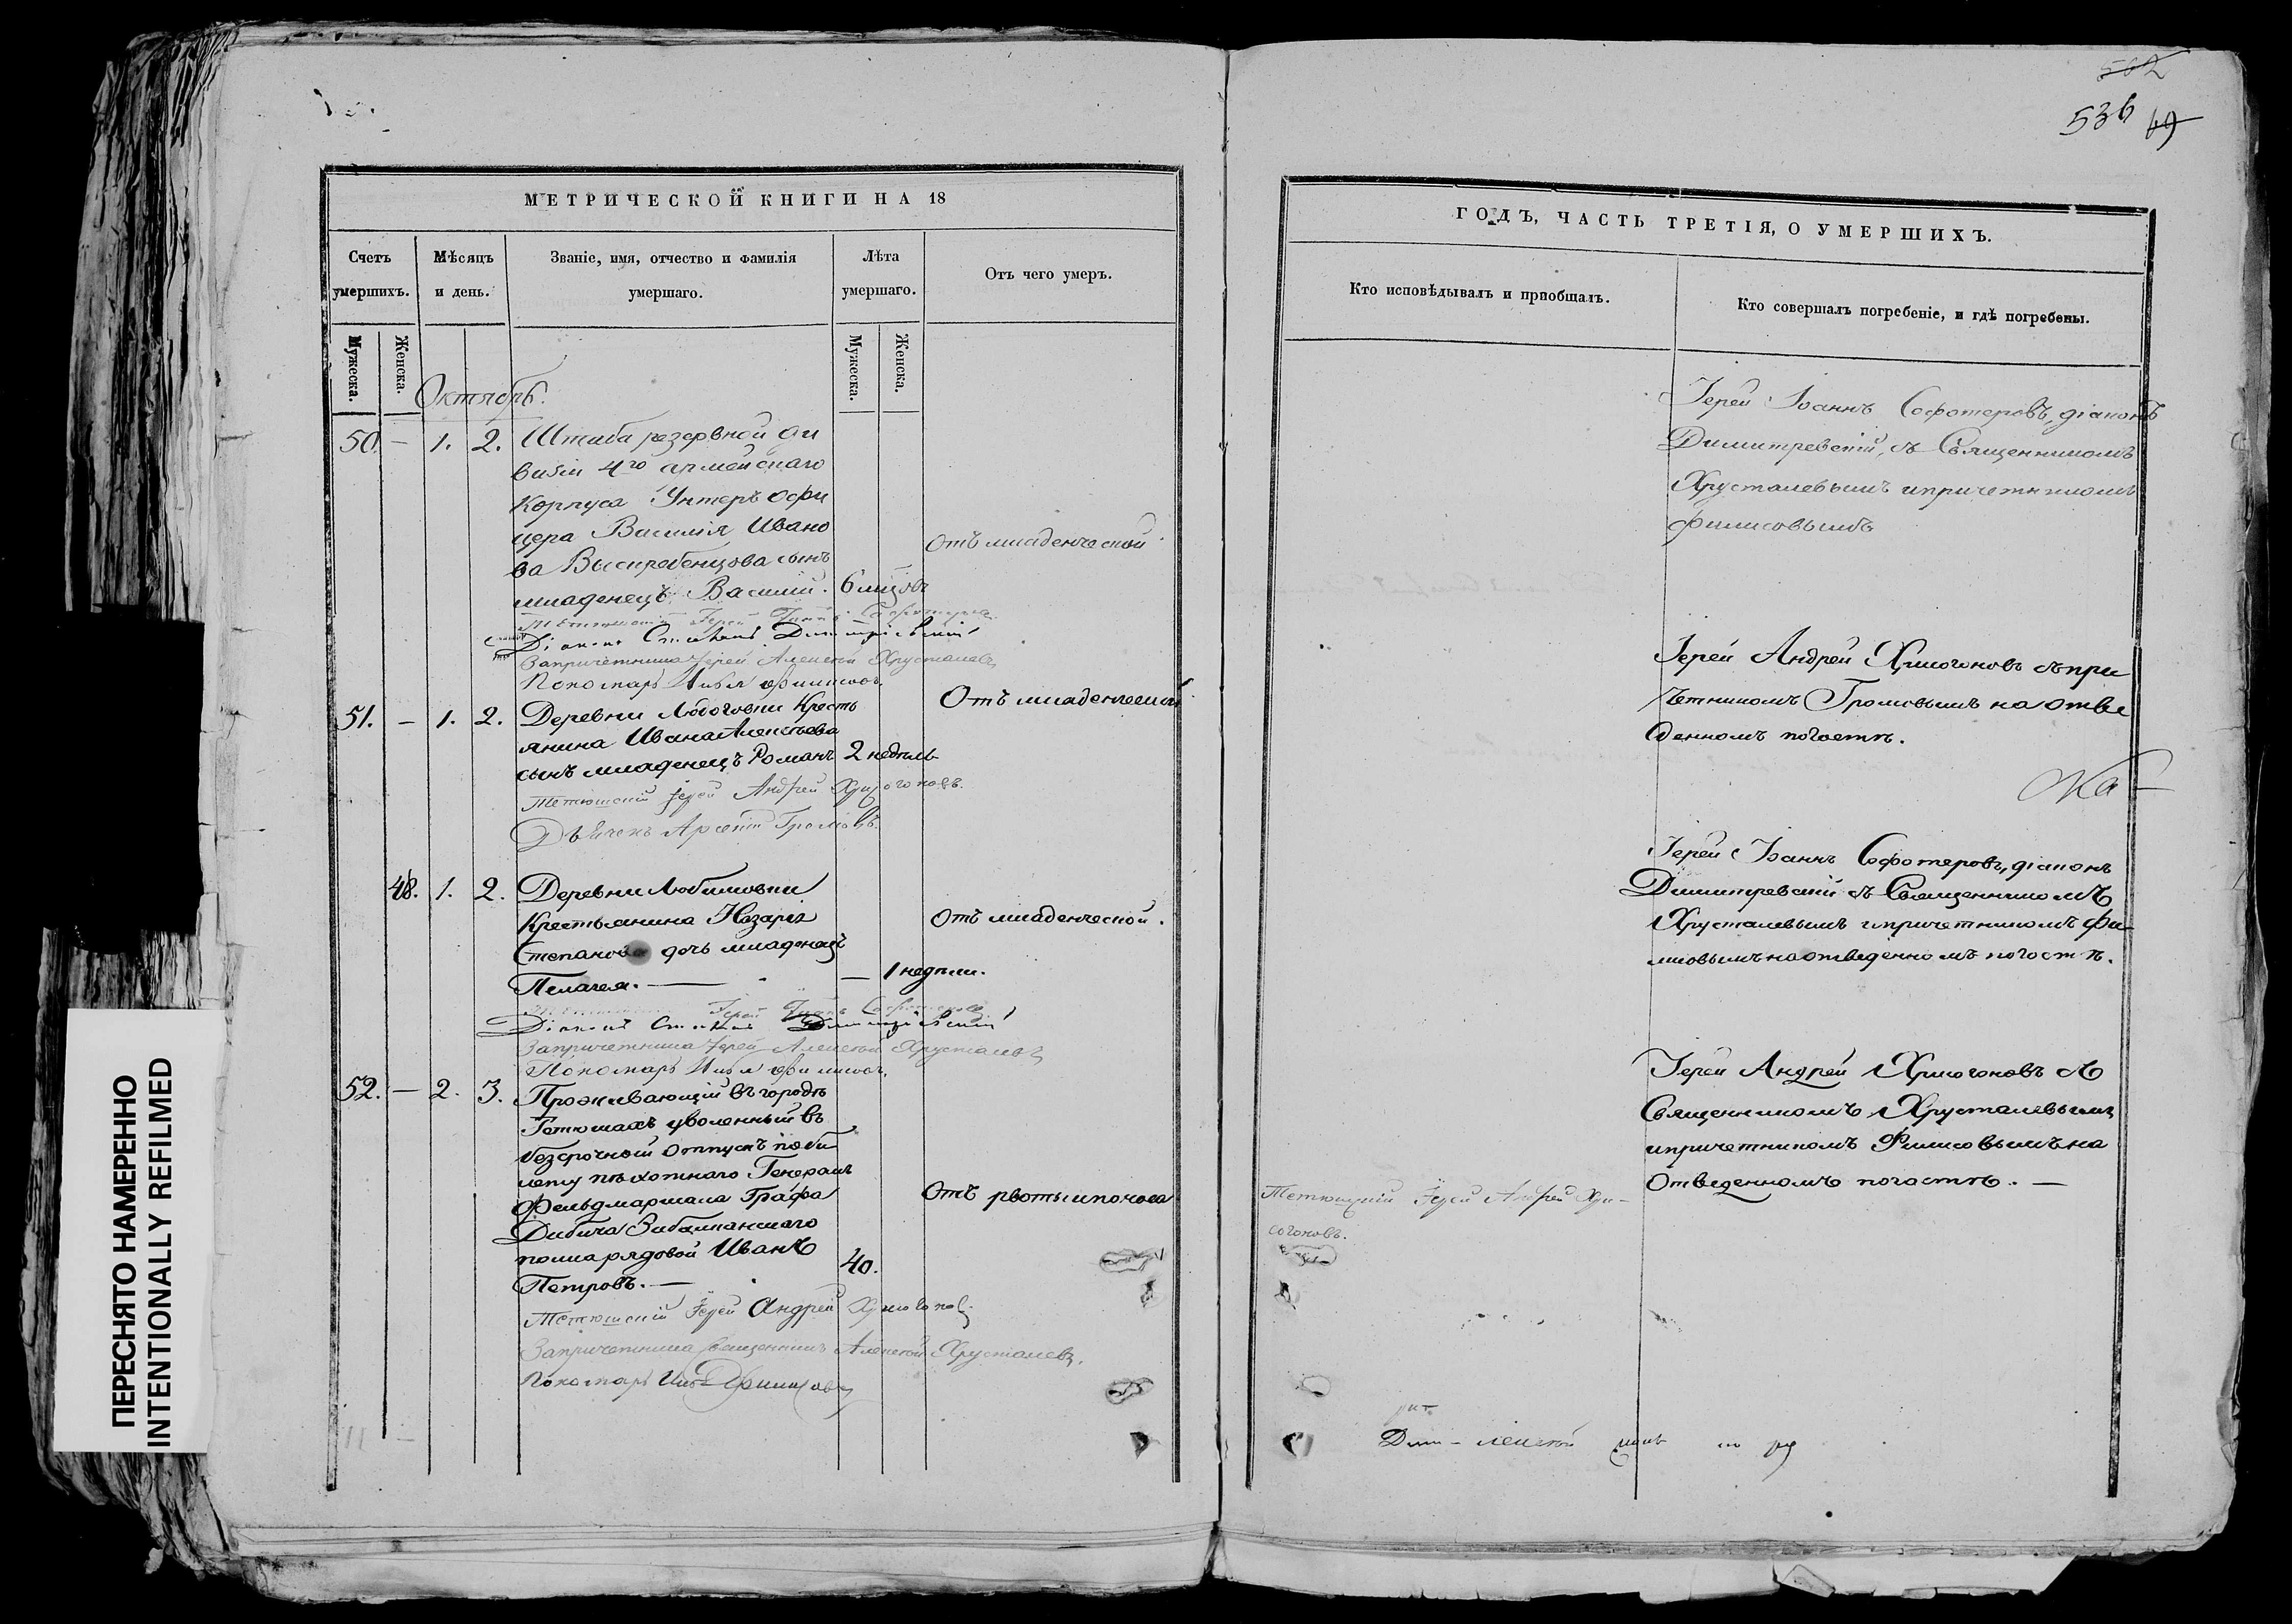 562
536 69
МЕТРИЧЕСКОЙ КНИГИ НА 18
Счетъ умершихъ.
Мѣсяцъ и день.
Званіе, имя, отчество и фамилія умершаго.
Лѣта умершаго.
Отъ чего умеръ.
Мужеска.
Женска.
Мужеска.
Женска.
Октябрь.
50. — 1. 2. Штаба резервной ди
визіи 4го армейскаго
Корпуса Унтеръ офи
цера Василія Ивано
ва сынъ
младенецъ Василій. 6 мцовъ
Отъ младенческой
Іерей Іоаннъ
Діаконъ Стефанъ Димитріевскій
Запричетника Іерей Алексей Хрусталевъ
Пономарь Илья Филисовъ.
51. — 1. 2. Деревни Кресть
янина Ивана Алексеева
сынъ младенецъ Романъ 2 недѣль
Отъ младенческой
Тетюшскій Іерей Андрей Хрисогоновъ.
Дьячекъ Арсеній Громовъ.
48. 1. 2. Деревни Любимовки
Крестьянина Назарія
Степанова дочь младенецъ
Пелагея. — — 1 недѣли.
Отъ младенческой.
Іерей Іоаннъ
Діаконъ Стефанъ Димитріевскій
Запричетника Іерей Алексей Хрусталевъ
Пономарь Илья Филисовъ.
52. — 2. 3. Проживающій въ городѣ
Тетюшахъ уволенный въ
безсрочной отпускъ по би
лету пѣхотнаго Генералъ
Фельдмаршала Графа
Дибича Забалканскаго
полка рядовой Иванъ
Петровъ. — 40.
Отъ рвоты и поноса
Тетюшскій Іерей Андрей Хрисогоновъ
Запричетника священникъ Алексей Хрусталевъ.
Пономарь Илья Филисовъ
ГОДЪ, ЧАСТЬ ТРЕТІЯ, О УМЕРШИХЪ.
Кто исповѣдывалъ и пріобщалъ.
Кто совершалъ погребеніе, и гдѣ погребены.
Іерей Іоаннъ Софотеровъ, діаконъ
Димитревскій, съ Священникомъ
Хрусталевымъ и причетникомъ
Филисовымъ
Іерей Андрей Хрисогоновъ съ при
четникомъ Громовымъ на отве
денномъ погостѣ.
Іерей Іоаннъ Софотеровъ, діаконъ
Димитревскій съ Священникомъ
Хрусталевымъ и причетникомъ Фи
лисовымъ на отведенномъ погостѣ.
Іерей Андрей Хрисогоновъ съ
Священникомъ Хрусталевымъ
и причетникомъ Филисовымъ на
отведенномъ погостѣ. —
Тетюшскій Іерей Андрей Хри-
согоновъ.
ПЕРЕСНЯТО НАМЕРЕННО
INTENTIONALLY REFILMED